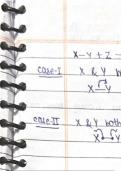 X-Y+Z-
Case-I X & Y b
X Y
Case-II X & Y both
X Y